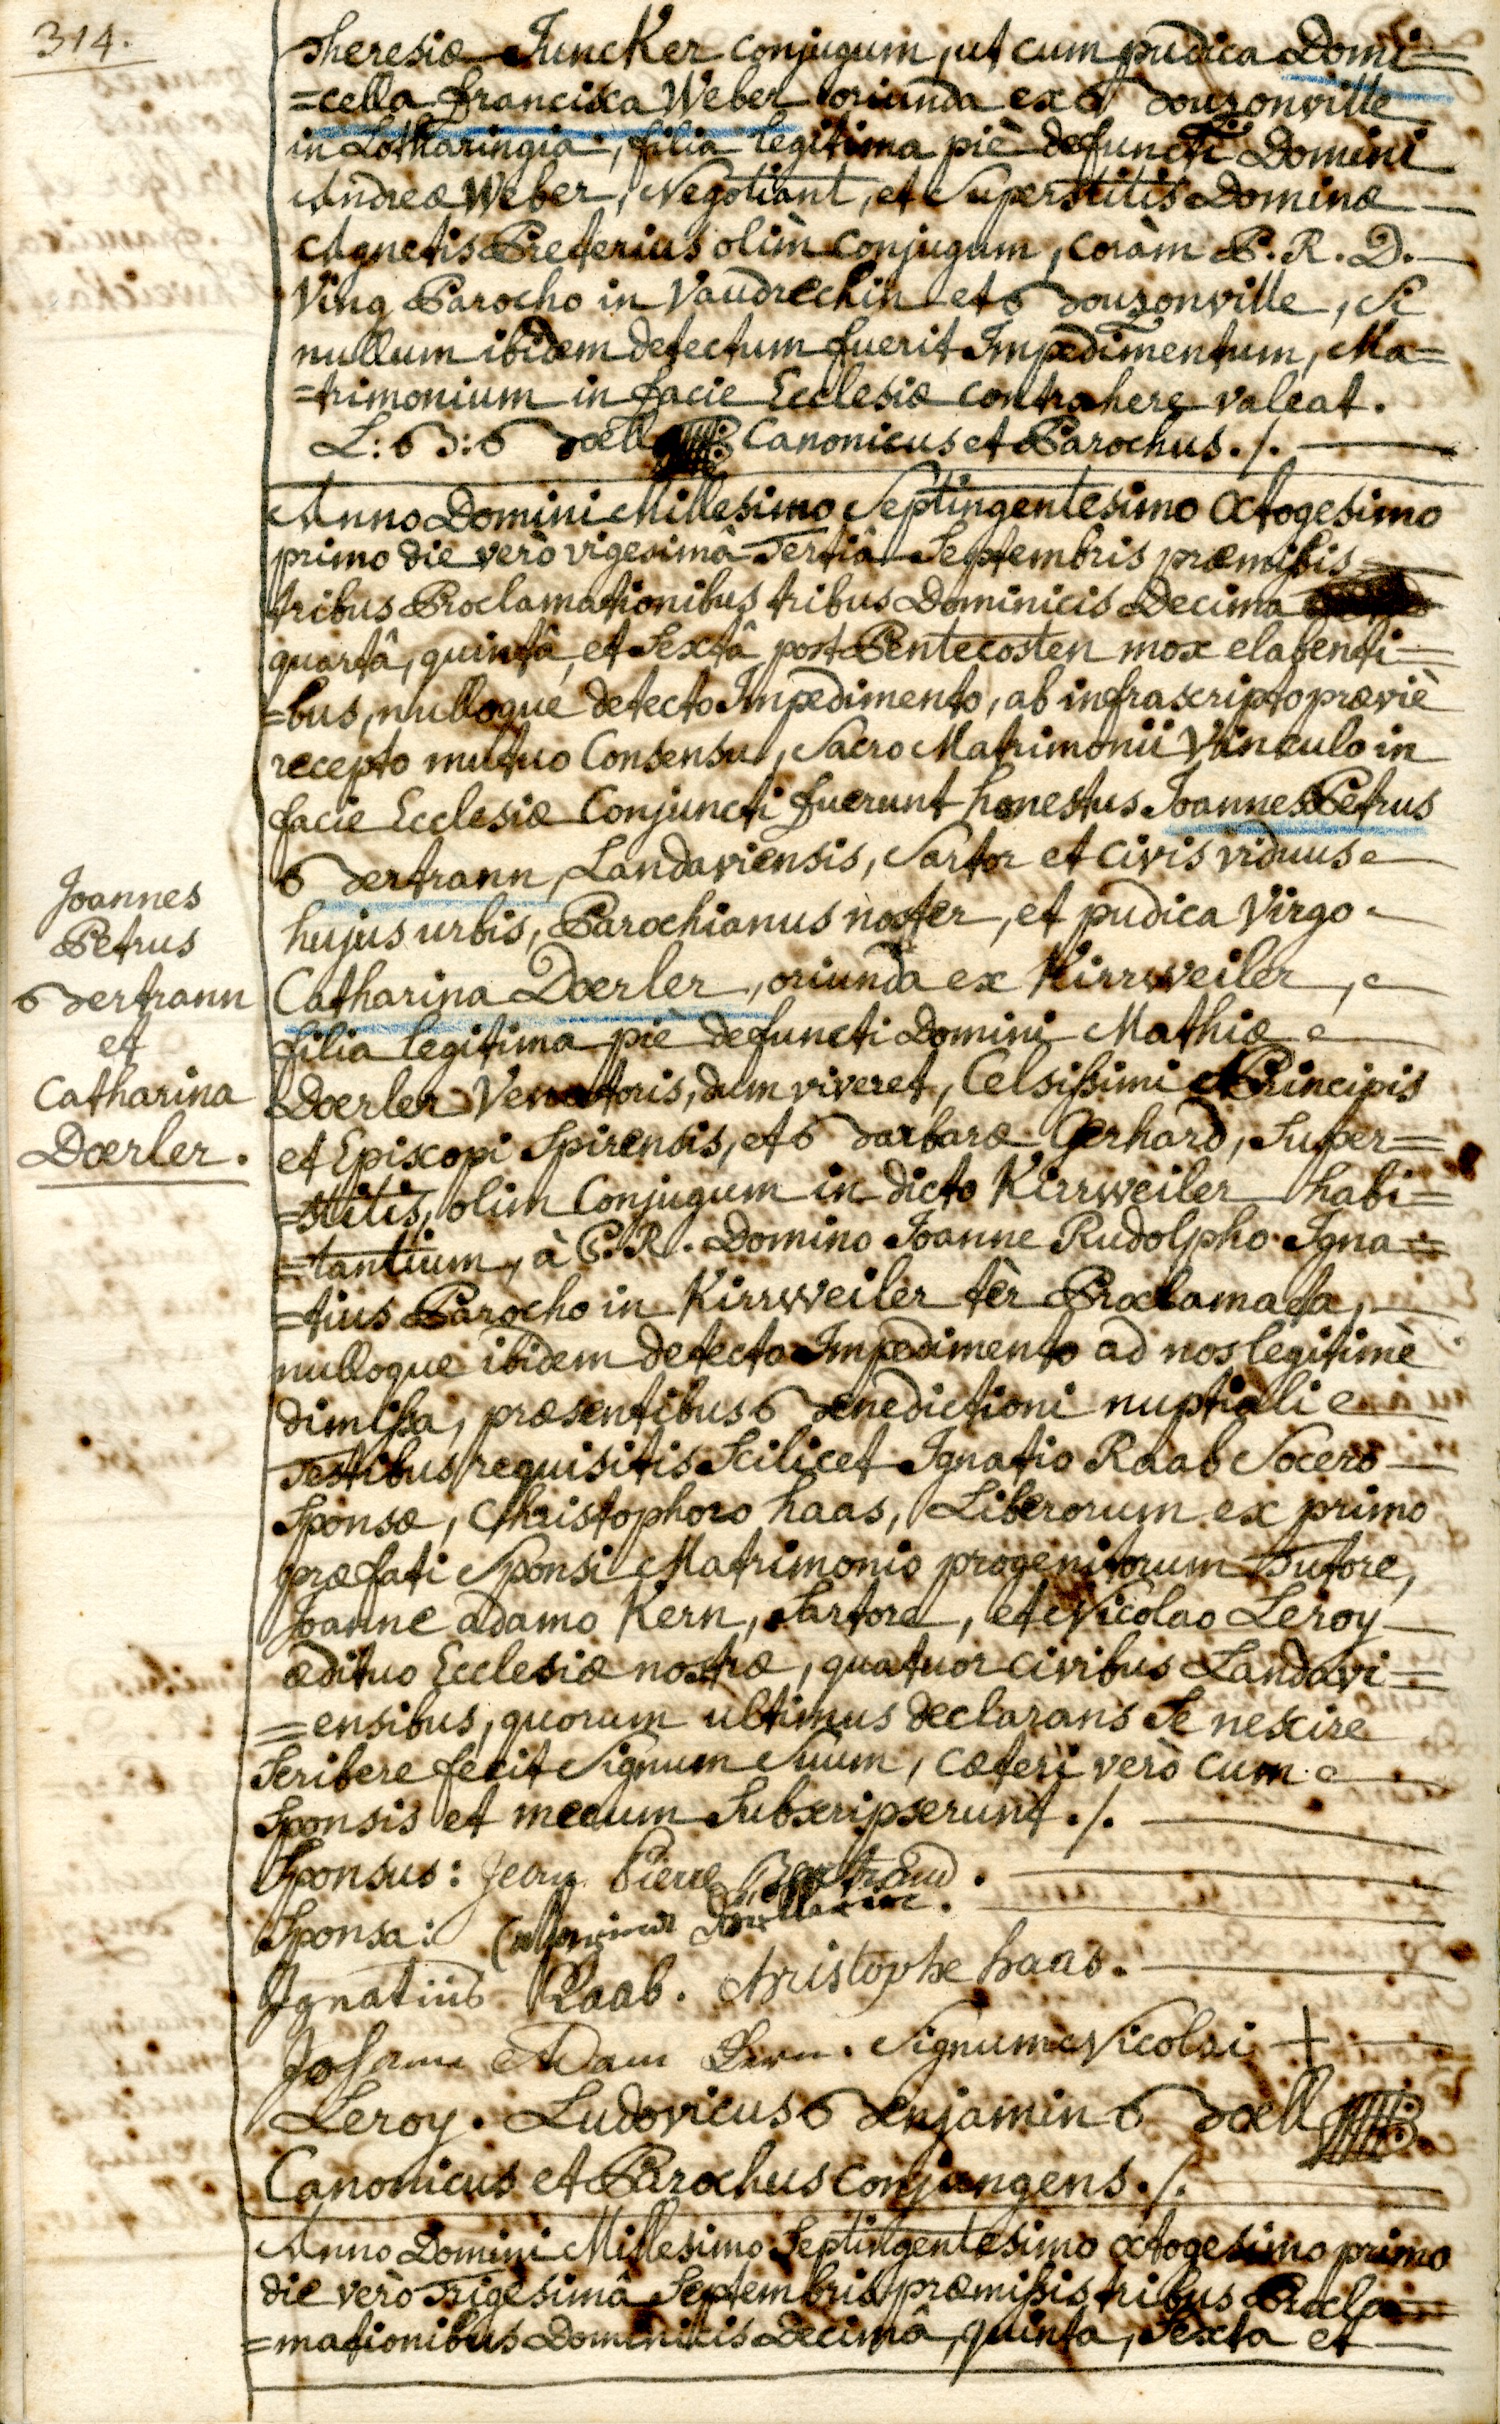 314.
Theresiæ Juncker conjugum, ut cum pudica Domi=
=cella francisca Weber oriunda ex Bouzonville
in Lotharingia, filia legitima piè defuncti Domini
Andreæ Weber, Negotiant, et Superstitis Dominæ
Agnetis Preterius olìm conjugum, coràm P. R. D.
Ving Parocho in Vaudrechin et Bouzonville, Si
nullum ibidem detectum fuerit Impedimentum, Ma=
=trimonium in facie Ecclesiæ contrahere valeat.
L: B: Boell Canonicus et Parochus ./.
Anno Domini Millesimo Septingentesimo Octogesimo
primo die verò vigesimâ Tertiâ Septembris præmißis
tribus Proclamationibus tribus Dominicis Decima
quartâ, quintâ, et Sextâ post Pentecosten mox elabenti=
=bus, nulloque detecto Impedimento, ab infrascripto præviè
recepto mutuo Consensu, Sacro Matrimonii Vinculo in
facie Ecclesiæ Conjuncti fuerunt honestus Joannes Petrus
Bertrann, Landaviensis, Sartor et civis viduus
hujus urbis, Parochianus noster, et pudica Virgo
Catharina Doerler, oriunda ex Kirrweiler,
filia legitima piè defuncti Domini Mathiæ
Doerler Venatoris, dum viveret, Celsißimi Principis
et Episcopi Spirensis, et Barbaræ Gerhard, Super=
=stitis, olim Conjugum in dicto Kirrweiler habi=
=tantium, à P. R. Domino Joanne Rudolpho Igna=
=tius Parocho in Kirrweiler tèr Proclamata,
nulloque ibidem detecto Impedimento ad nos legitimè
dimißa, præsentibus Benedictioni nuptiali
Testibus requisitis Scilicet Ignatio Raab Socero
Sponsæ, Christophoro haas, Liberorum ex primo
præfati Sponsi Matrimonio progenitorum Tutore,
Joanne adamo Kern, Sartore, et Nicolao Leroy
ædituo Ecclesiæ nostræ, quatuor civibus Landavi=
=ensibus, quorum ultimus declarans Se nescire
Scribere fecit Signum Suum, cæteri verò cum
Sponsis et mecum Subscripserunt ./.
Joannes
Petrus
Bertrann
et
Catharina
Doerler.
Sponsus: Jean Pierre Bertrand.
Sponsa:
Ignatius Raab. Christophe haas.
Johann Adam Kern. Signum Nicolai +
Leroy. Ludovicus Benjamin Boell
Canonicus et Parochus conjungens ./.
Anno Domini Millesimo Septingentesimo octogesimo primo
die verò Trigesimâ Septembris præmißis tribus Procla=
=mationibus Dominicis Decimâ, quinta, Sexta et